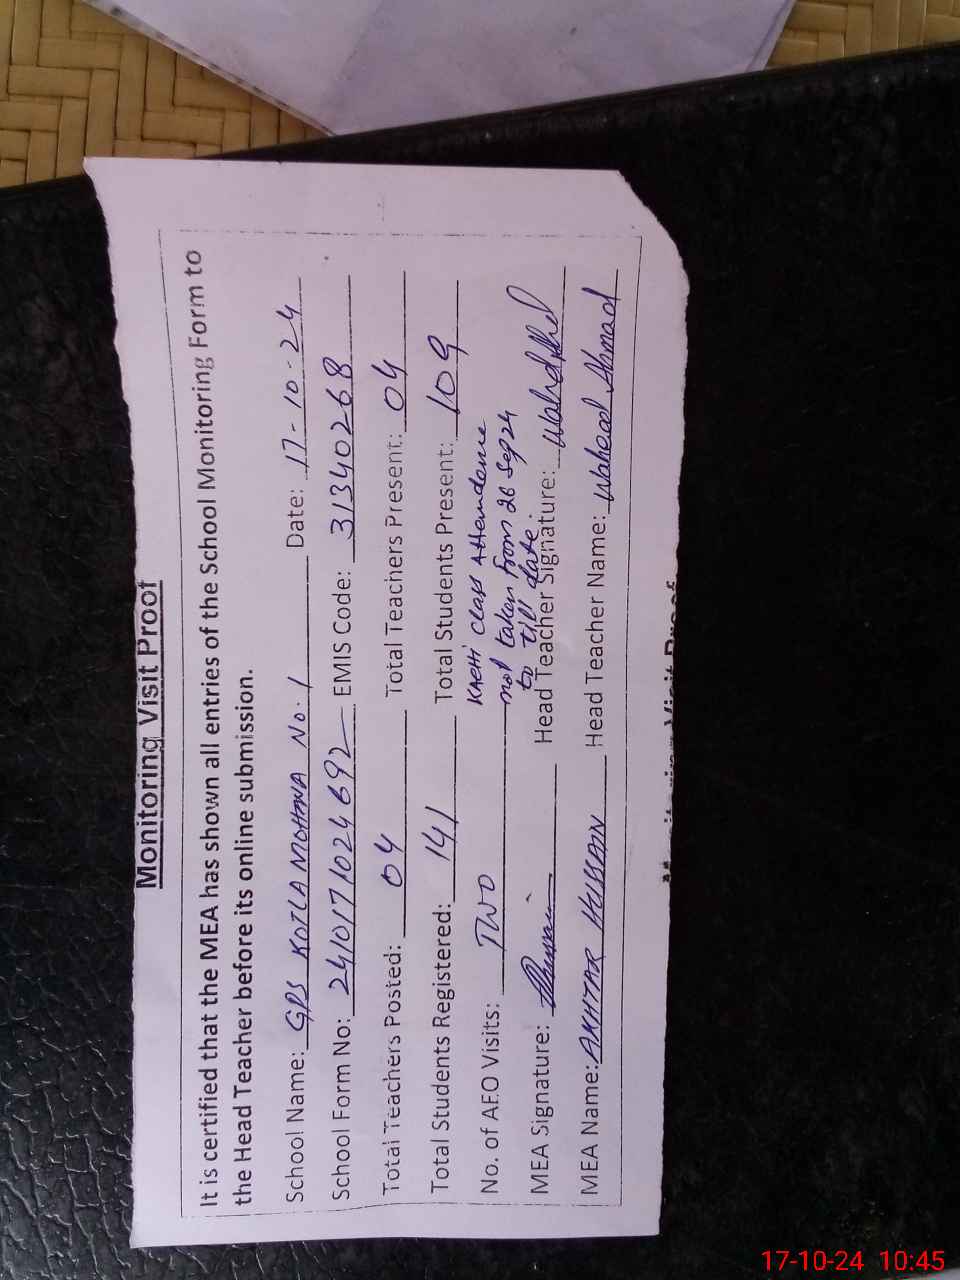 Monitoring Visit Proof
It is certified that the MEA has shown all entries of the School Monitoring Form to
the Head Teacher before its online submission.
School Name: GPS KOTLA MOHANA No. 1 Date: 17-10-24
School Form No: 2410171024692 EMIS Code: 31340268
Total Teachers Posted: 04 Total Teachers Present: 04
Total Students Registered: 141 Total Students Present: 109
No. of AEO Visits: TWO KACHI class Attendance
not taken from 26 Sep 24
to till date.
MEA Signature: Head Teacher Signature:
MEA Name: AKHTAR HUSSAIN Head Teacher Name: Waheed Ahmad
17-10-24 10:45